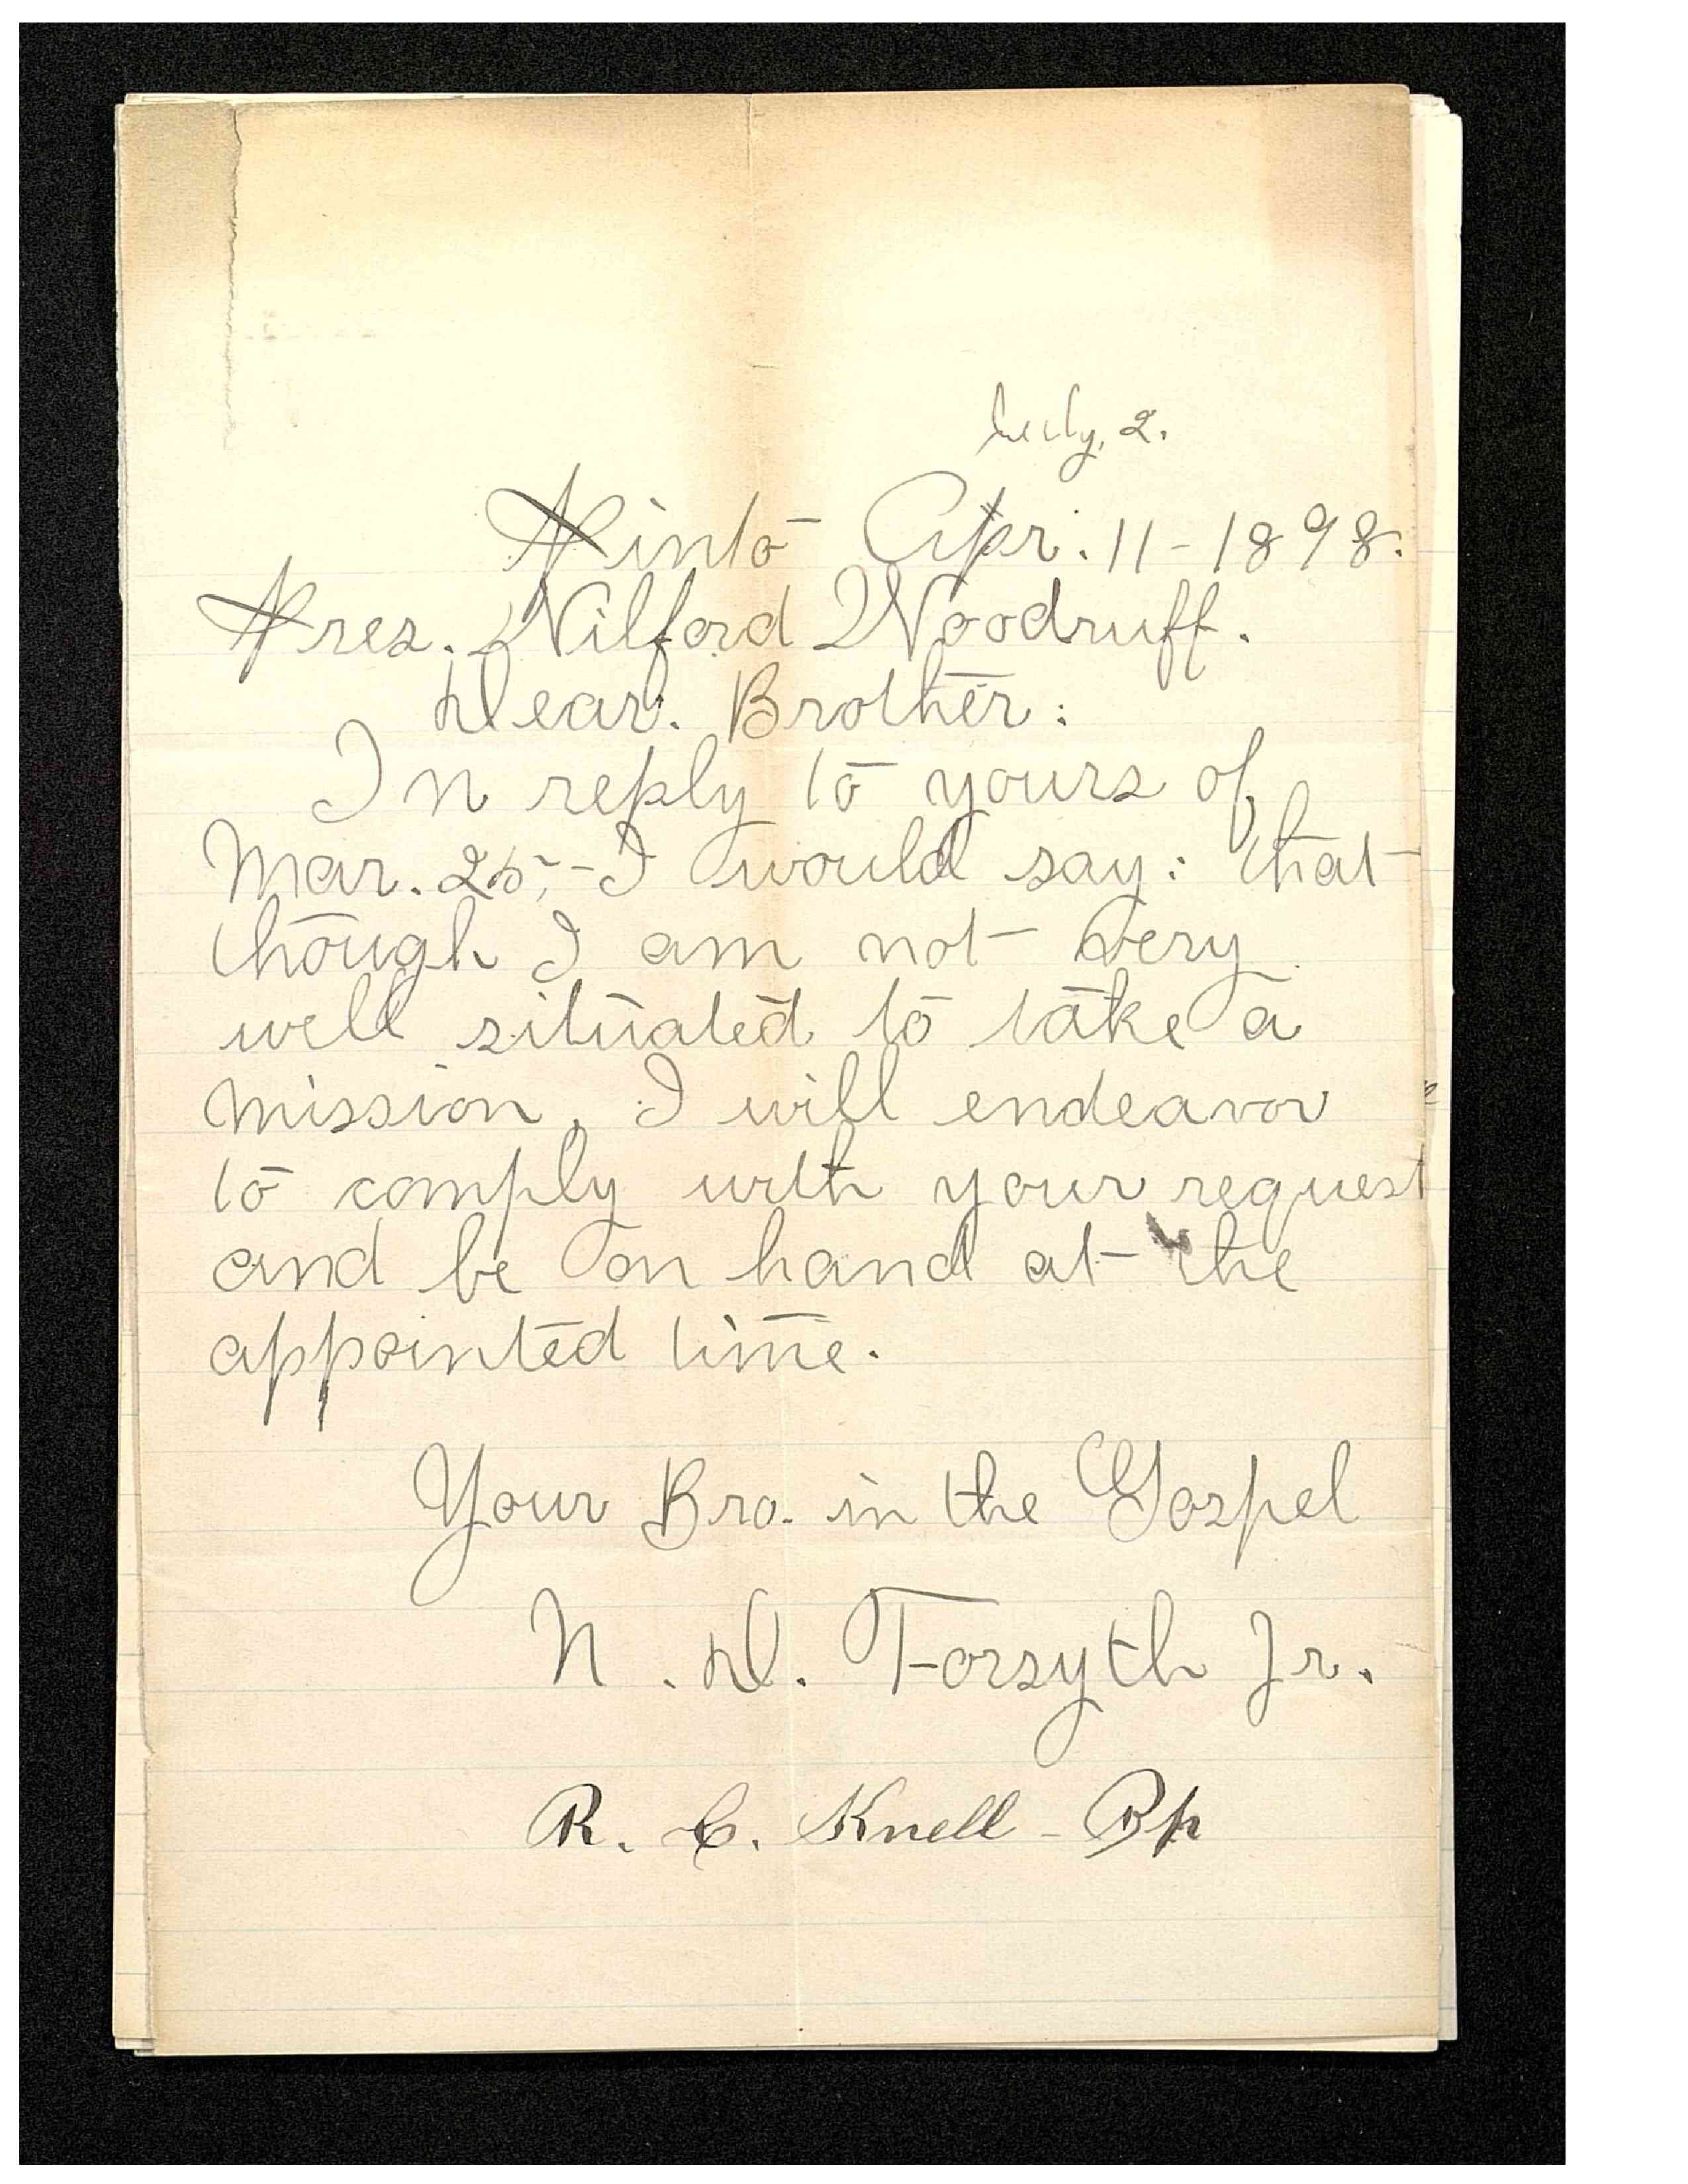 July, 2.
Pinto Apr. 11 - 1898.
Pres. Wilford Woodruff.
Dear. Brother:
In reply to yours of
Mar. 25,- I would say: that
though I am not very
well situated to take a
mission, I will endeavor
to comply with your request
and be on hand at the
appointed time.
Your Bro. in the Gospel
N. D. Forsyth Jr.
R. C. Knell - Bp